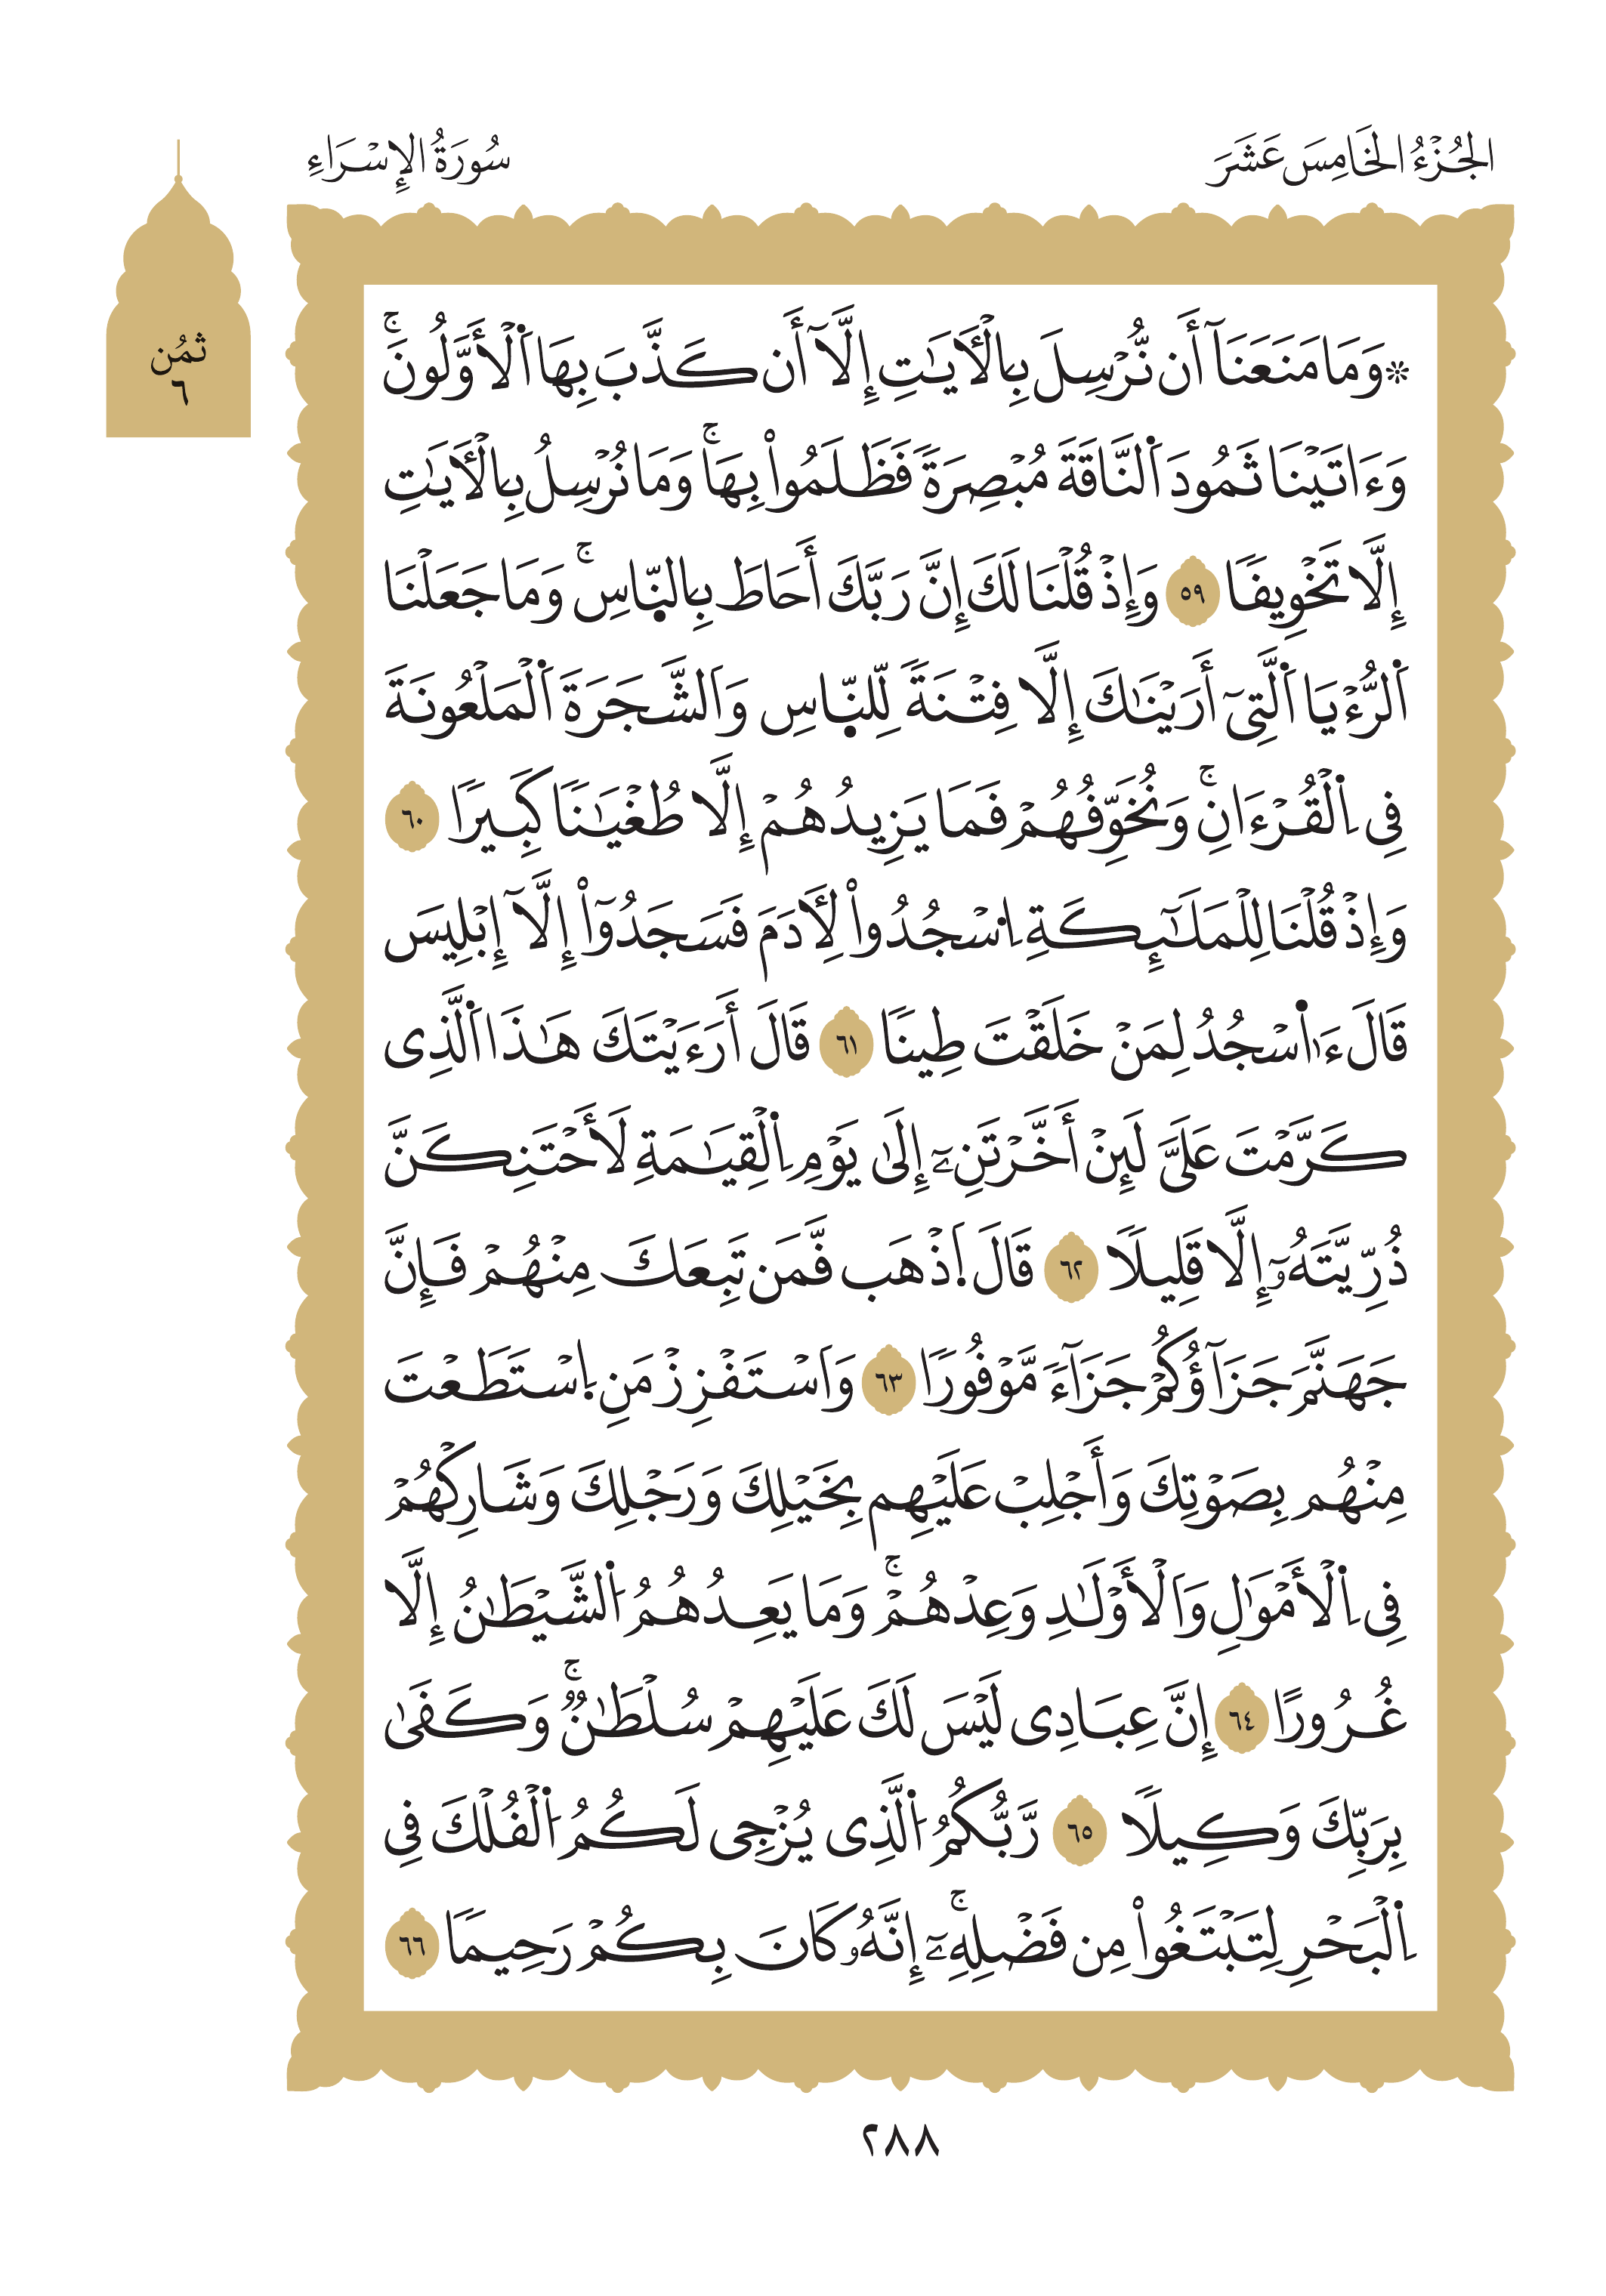 الجُزْءُ الخَامِسَ عَشَرَ
سُورَةُ الإِسْرَاءِ
ثُمُن
٦
۞وَمَا مَنَعَنَآ أَن نُّرْسِلَ بِالْأَيَٰتِ إِلَّآ أَن كَذَّبَ بِهَا اَ۬لْأَوَّلُونَۚ
وَءَاتَيْنَا ثَمُودَ اَ۬لنَّاقَةَ مُبْصِرَةٗ فَظَلَمُواْ بِهَاۚ وَمَا نُرْسِلُ بِالْأَيَٰتِ
إِلَّا تَخْوِيفٗا ٥٩ وَإِذْ قُلْنَا لَكَ إِنَّ رَبَّكَ أَحَاطَ بِالنّ۪اسِۚ وَمَا جَعَلْنَا
اَ۬لرُّءْيَا اَ۬لَّتِيٓ أَرَيْنَٰكَ إِلَّا فِتْنَةٗ لِّلنّ۪اسِ وَالشَّجَرَةَ اَ۬لْمَلْعُونَةَ
فِي اِ۬لْقُرْءَانِۚ وَنُخَوِّفُهُمْ فَمَا يَزِيدُهُمْ إِلَّا طُغْيَٰنٗا كَبِيرٗا ٦٠
وَإِذْ قُلْنَا لِلْمَلَٰٓئِكَةِ اِ۟سْجُدُواْ لِأَدَمَ فَسَجَدُوٓاْ إِلَّآ إِبْلِيسَ
قَالَ ءَا۬سْجُدُ لِمَنْ خَلَقْتَ طِينٗا ٦١ قَالَ أَرَءَيْتَكَ هَٰذَا اَ۬لَّذِي
كَرَّمْتَ عَلَيَّ لَئِنْ أَخَّرْتَنِۦٓ إِلَىٰ يَوْمِ اِ۬لْقِيَٰمَةِ لَأَحْتَنِكَنَّ
ذُرِّيَّتَهُۥٓ إِلَّا قَلِيلٗا ٦٢ قَالَ اَ۪ذْهَب فَّمَن تَبِعَكَ مِنْهُمْ فَإِنَّ
جَهَنَّمَ جَزَآؤُكُمْ جَزَآءٗ مَّوْفُورٗا ٦٣ وَاسْتَفْزِزْ مَنِ اِ۪سْتَطَعْتَ
مِنْهُم بِصَوْتِكَ وَأَجْلِبْ عَلَيْهِم بِخَيْلِكَ وَرَجْلِكَ وَشَارِكْهُمْ
فِي اِ۬لْأَمْوَٰلِ وَالْأَوْلَٰدِ وَعِدْهُمْۚ وَمَا يَعِدُهُمُ اُ۬لشَّيْطَٰنُ إِلَّا
غُرُورًا ٦٤ إِنَّ عِبَادِي لَيْسَ لَكَ عَلَيْهِمْ سُلْطَٰنٞۚ وَكَفَىٰ
بِرَبِّكَ وَكِيلٗا ٦٥ رَّبُّكُمُ اُ۬لَّذِي يُزْجِي لَكُمُ اُ۬لْفُلْكَ فِي
اِ۬لْبَحْرِ لِتَبْتَغُواْ مِن فَضْلِهِۦٓۚ إِنَّهُۥ كَانَ بِكُمْ رَحِيمٗا ٦٦
٢٨٨